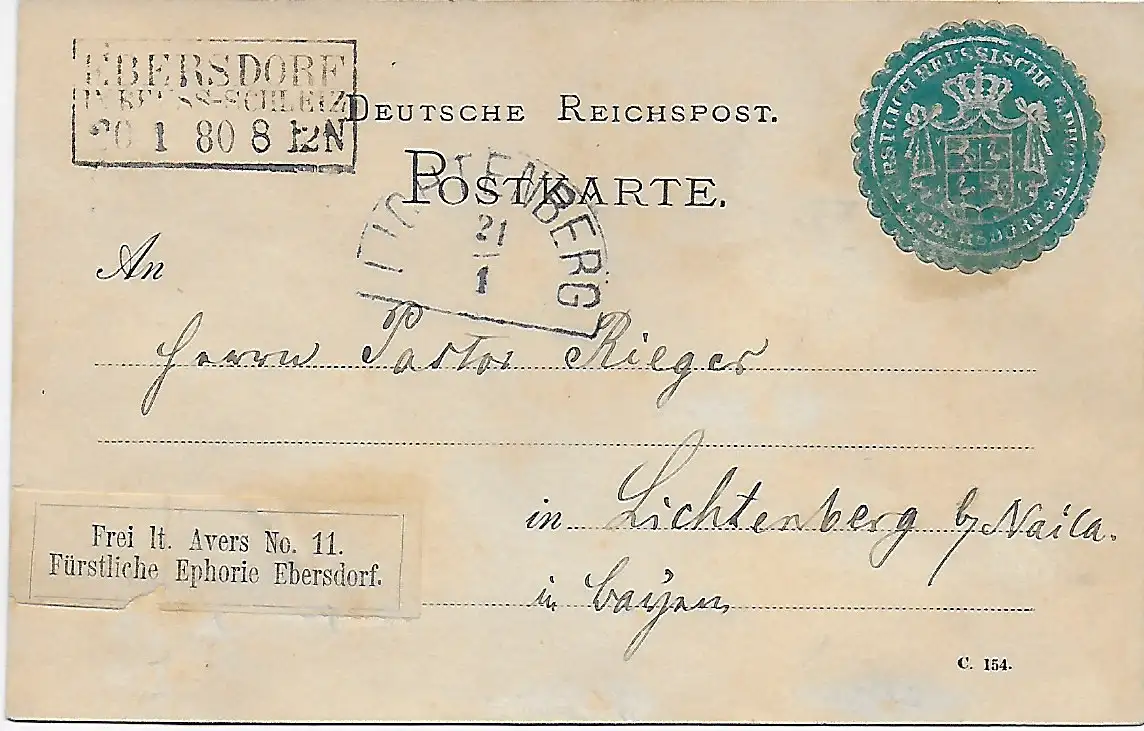 EBERSDORF
IN REUSS-SCHLEIZ
20 1 80 8 12N
DEUTSCHE REICHSPOST.
POSTKARTE.
FÜRSTLICH REUSSISCHE EPHORIE
* EBERSDORF *
LICHTENBERG
21
1
An
Herrn Pastor Rieger
in Lichtenberg b/Naila.
in Bayern
Frei lt. Avers No. 11.
Fürstliche Ephorie Ebersdorf.
C. 154.